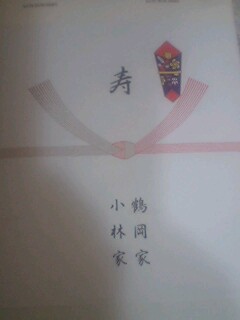 寿
鶴岡家
小林家